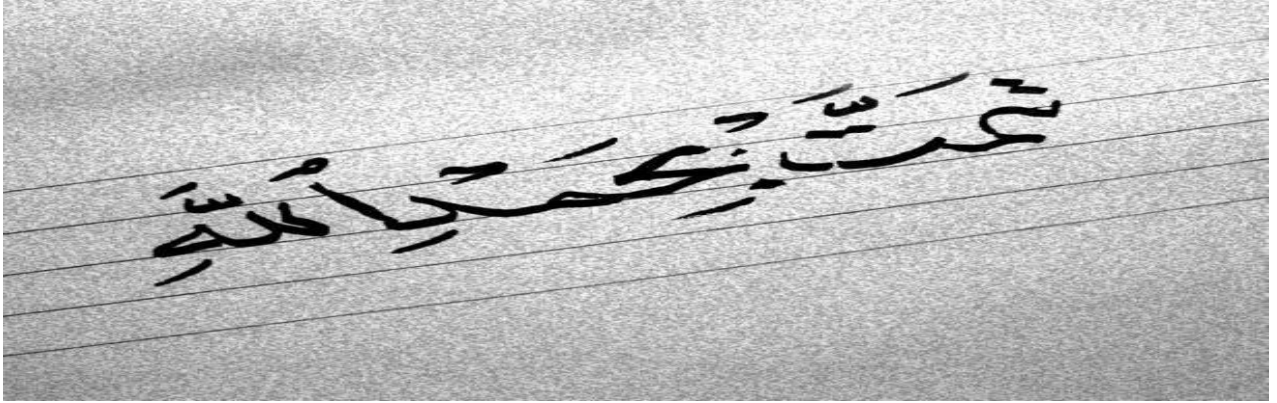 تَمَّتْ بِحَمْدِ ٱللَّهِ